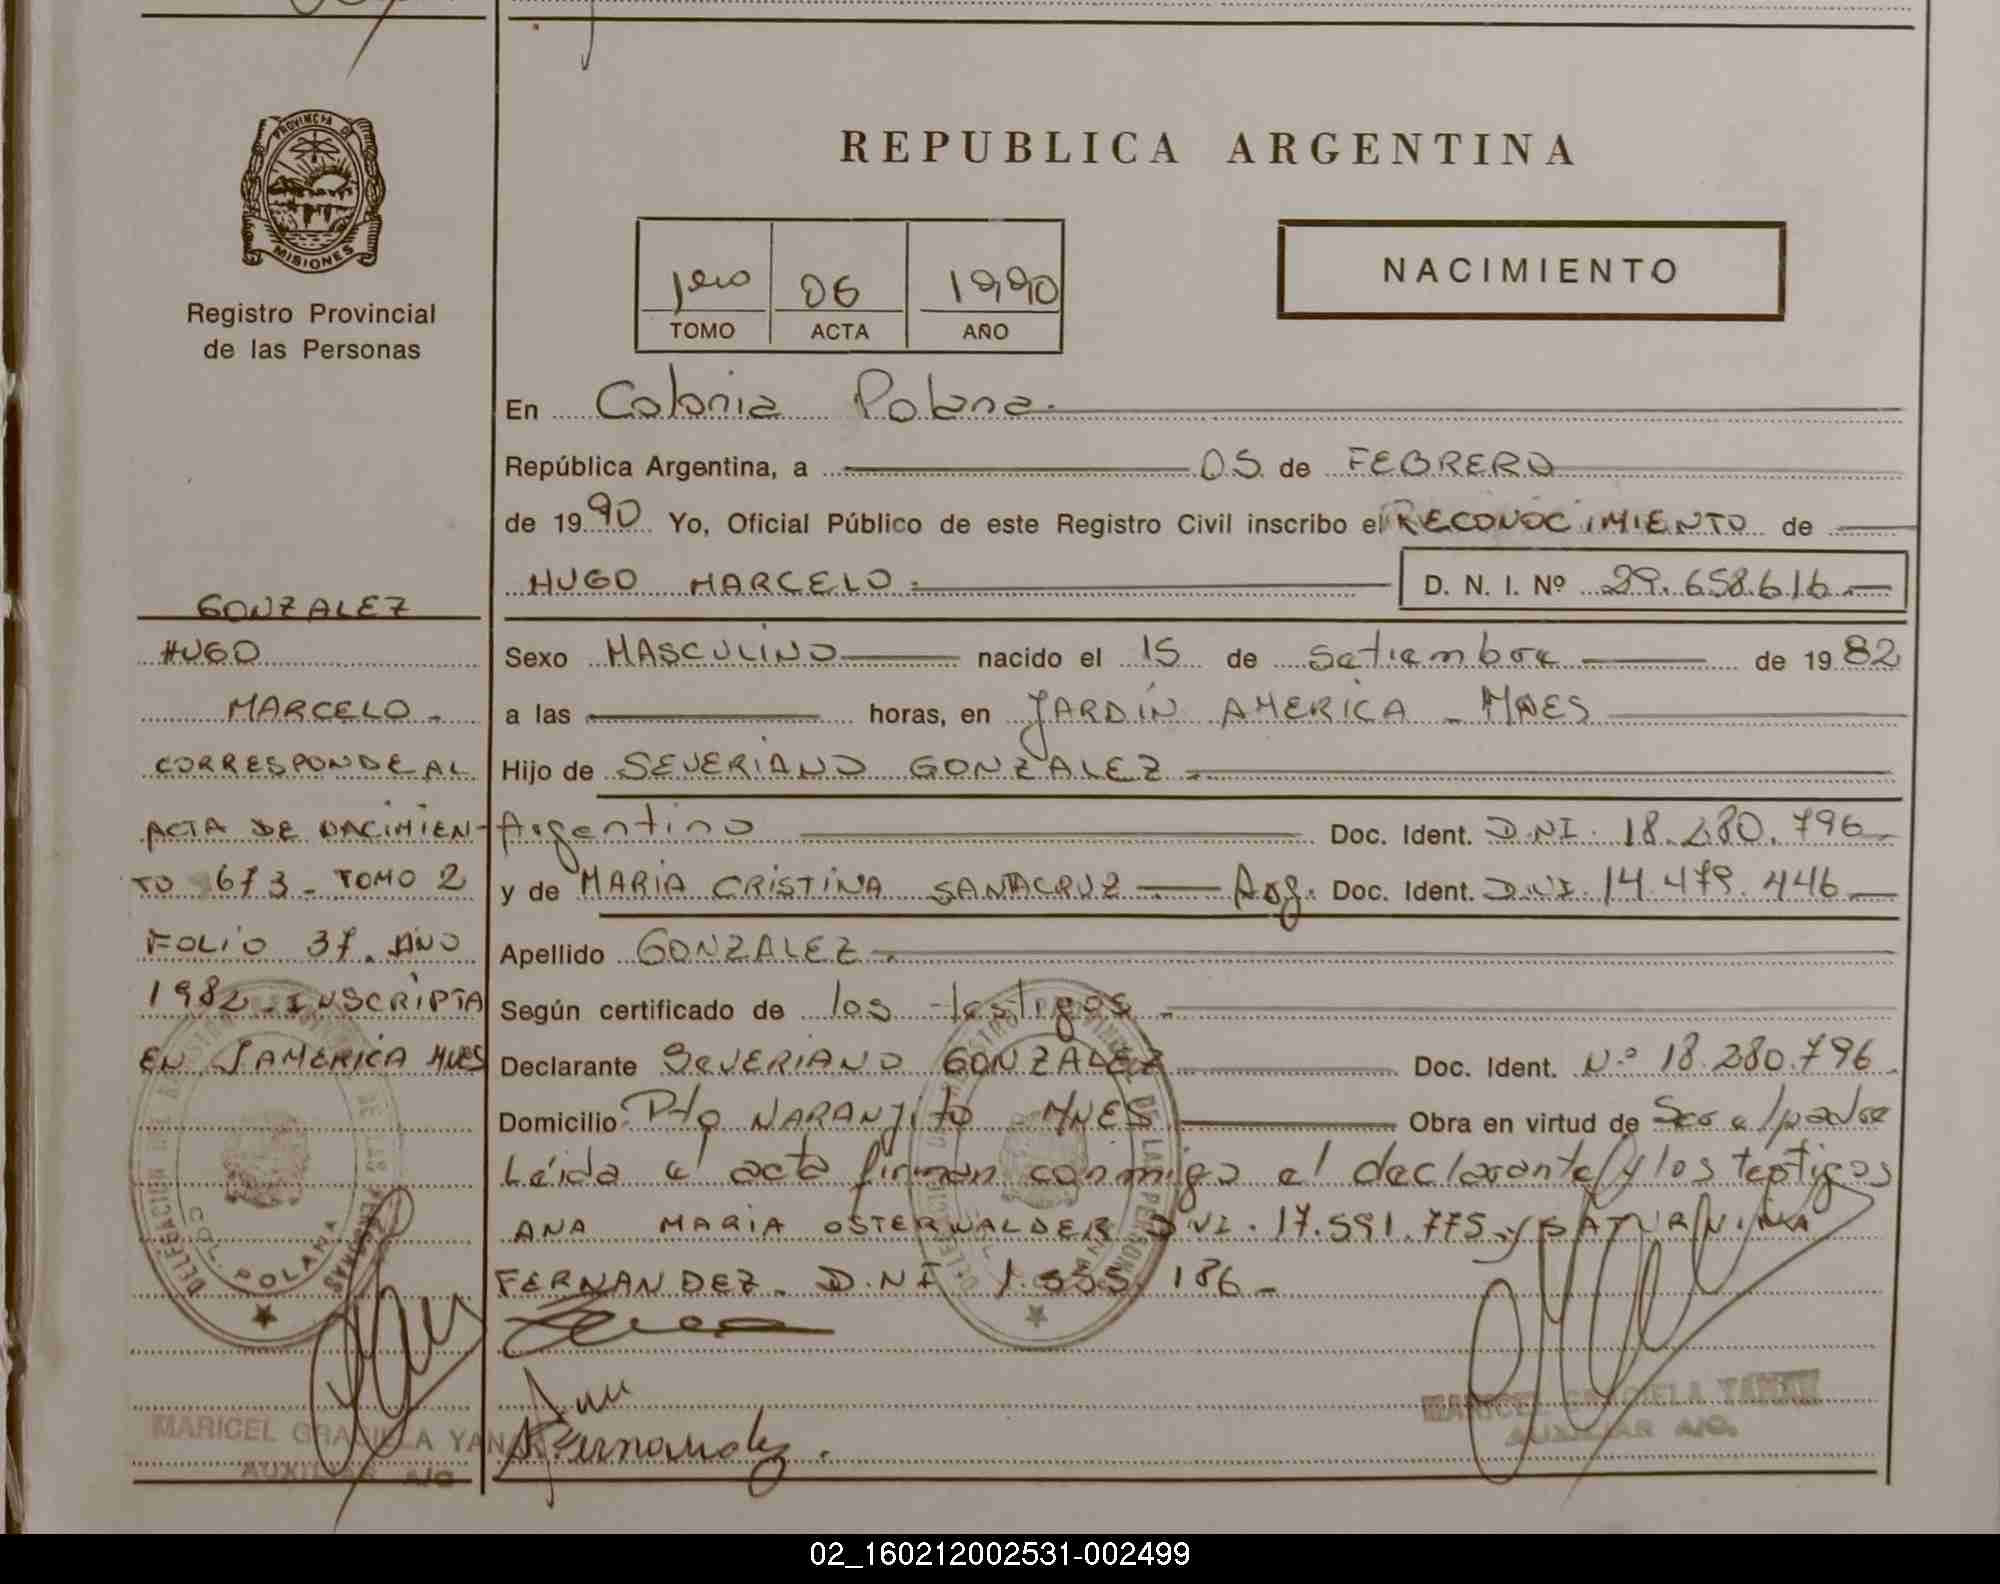 PROVINCIA DE
MISIONES
Registro Provincial
de las Personas
GONZALEZ
HUGO
MARCELO.
CORRESPONDE AL
ACTA DE NACIMIEN-
TO 673 - TOMO 2
FOLIO 37. AÑO
1982 - INSCRIPTA
EN J AMERICA MNES
COL. POLANA
MARICEL GRACIELA YANAK
AUXILIAR A/C
REPUBLICA ARGENTINA
1ero 06 1990
TOMO ACTA AÑO
NACIMIENTO
En Colonia Polana.
República Argentina, a 05 de FEBRERO
de 1990 Yo, Oficial Público de este Registro Civil inscribo el RECONOCIMIENTO de
HUGO MARCELO. D. N. I. Nº 29.658.616.-
Sexo MASCULINO nacido el 15 de Setiembre de 1982
a las horas, en JARDÍN AMERICA - MNES
Hijo de SEVERIANO GONZALEZ -
Argentino Doc. Ident. D.NI. 18.280.796-
y de MARIA CRISTINA SANTACRUZ.- Arg. Doc. Ident. D.N.I. 14.479.446-
Apellido GONZALEZ-.
Según certificado de los testigos.-
Declarante SEVERIANO GONZALEZ Doc. Ident. Nº 18.280.796
Domicilio Pto NARANJITO MNES Obra en virtud de Ser el padre
Leída el acta firman conmigo el declarante y los testigos
ANA MARIA OSTERWALDER DNI. 17.591.775 y SATURNINA
FERNANDEZ. D.NI 186-
Fernandez.
MARICEL GRACIELA YANAK
AUXILIAR A/C.
02_160212002531-002499